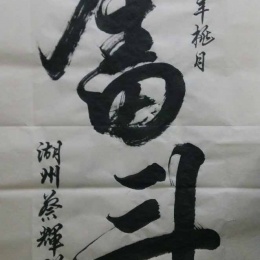 年桃月
奮斗
湖州蔡輝